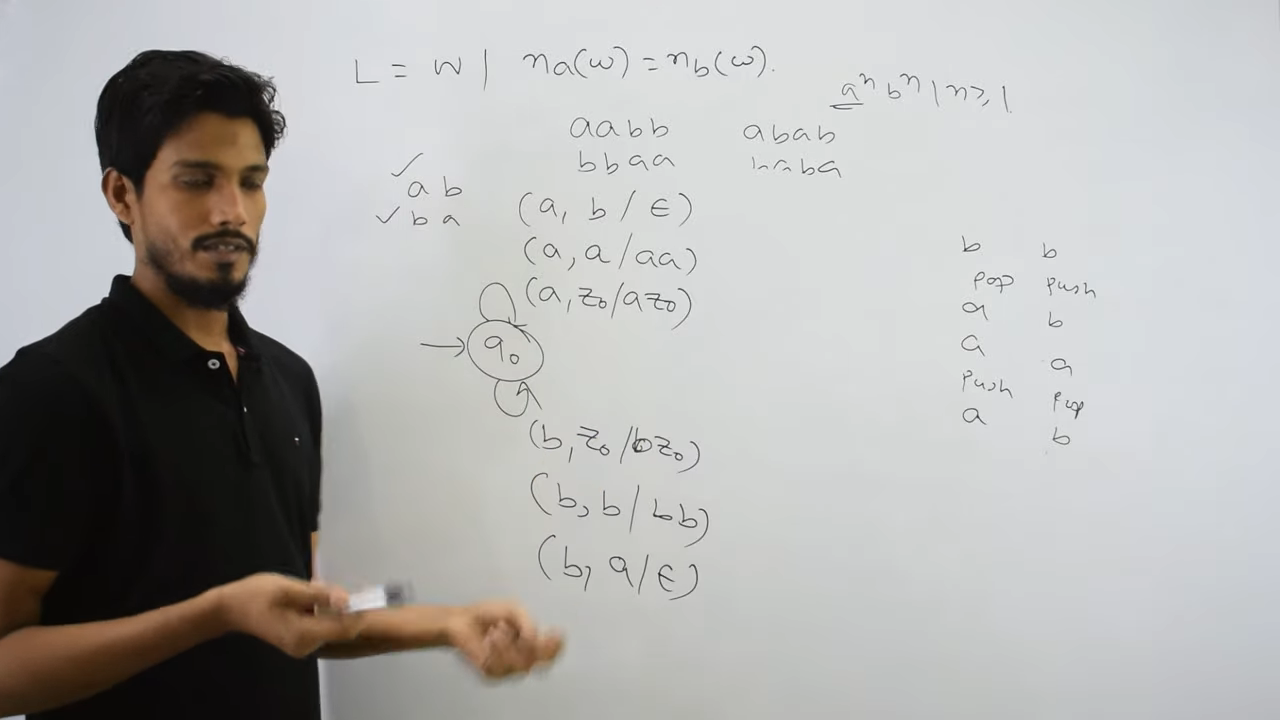 L = W | na(w) = nb(w).
a^n b^n | n ≥ 1
aabb abab
bbaa baba
ab
ba
(a, b / ε)
(a, a / aa)
(a, z₀ / a z₀)
q₀
(b, z₀ / b z₀)
(b, b / bb)
(b, a / ε)
b b
pop push
a b
a a
push pop
a b